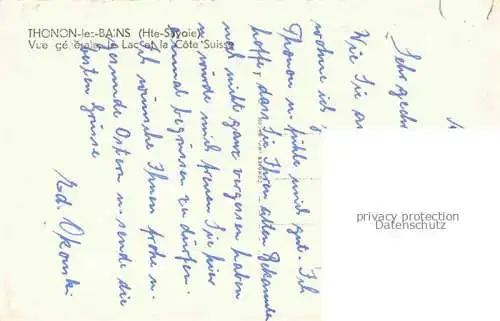 THONON-les-BAINS (Hte-Savoie)
Vue générale le Lac et la Côte Suisse
Sehr geehr
Wie Sie au
wohne ich
Thonon u. fühle mich gut. Ich
hoffe, dass Sie Ihren alten Bekannten
noch nicht ganz vergessen haben
u. würde mich freuen Sie hier
einmal begrüssen zu dürfen.
Ich wünsche Ihnen frohe u.
gesunde Ostern u. sende die
besten Grüsse
Ed. Okonski
privacy protection
Datenschutz